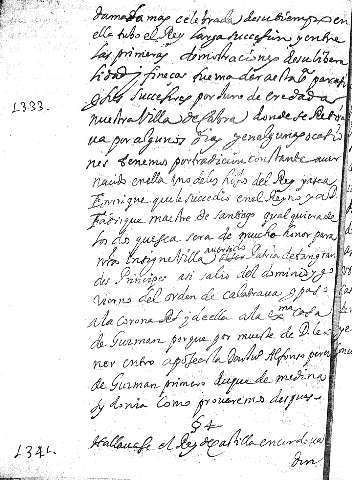 dama la mas celebrada de su tiempo en
ella tubo el Rey larga succession y entre
las primeras demostraciones de su libera
lidad y fineza fue mandar a esta para si
y sus succesores por Juro de eredad a
1333.
nuestra Villa de Cabra donde se retira
va por algunos dias y en algunas ocasio
nes tenemos por tradicion constante aver
nacido en ella uno de los hijos del Rey
Enrique que le succedio en el Reyno y
Fabrique maestre de santiago qualquiera de
los dos que sea sera de mucho honor para
esta insigne Villa aver sido Patria de tan gran
des Principes asi salio del dominio y go
vierno del orden de calatrava y paso
a la corona Rl y de ella a la exma casa
de Guzman porque por muerte de D. Leo
nor entro a poseerla Alfonso perez
de Guzman primero duque de medina
sydonia como proveremos despues
§ 4
1341.
Hallavase el Rey de castilla en cordova